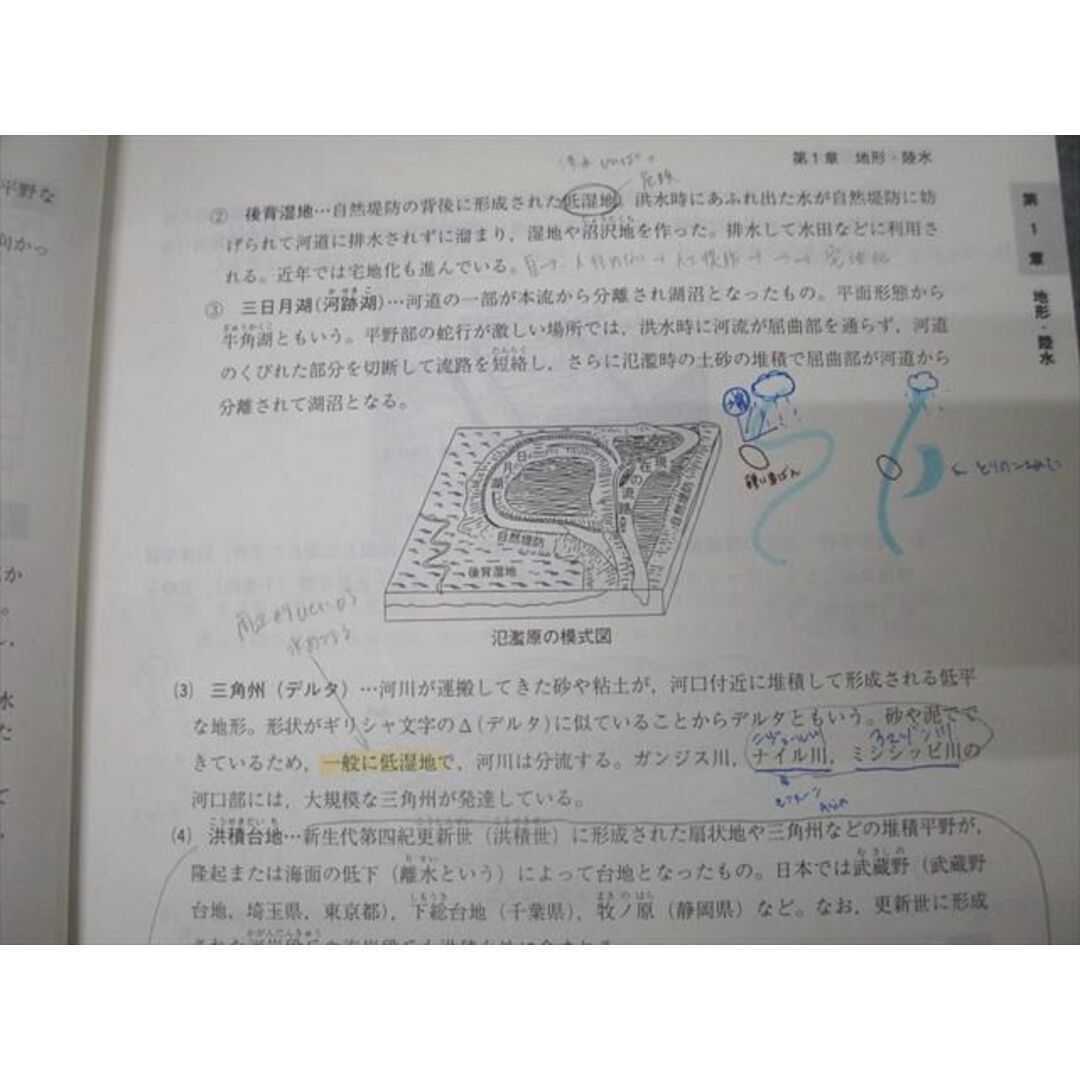 第1章 地形・陸水
平野な
向かっ
② 後背湿地…自然堤防の背後に形成された低湿地。洪水時にあふれ出た水が自然堤防に妨
げられて河道に排水されずに溜まり，湿地や沼沢地を作った。排水して水田などに利用さ
れる。近年では宅地化も進んでいる。
③ 三日月湖（河跡湖）…河道の一部が本流から分離され湖沼となったもの。平面形態から
牛角湖ともいう。平野部の蛇行が激しい場所では，洪水時に河流が屈曲部を通らず，河道
のくびれた部分を切断して流路を短絡し，さらに氾濫時の土砂の堆積で屈曲部が河道から
分離されて湖沼となる。
第1章 地形・陸水
三日月湖
現在の流路
自然堤防
自然堤防
後背湿地
氾濫原の模式図
(3) 三角州（デルタ）…河川が運搬してきた砂や粘土が，河口付近に堆積して形成される低平
な地形。形状がギリシャ文字のΔ（デルタ）に似ていることからデルタともいう。砂や泥でで
きているため，一般に低湿地で，河川は分流する。ガンジス川，ナイル川，ミシシッピ川の
河口部には，大規模な三角州が発達している。
(4) 洪積台地…新生代第四紀更新世（洪積世）に形成された扇状地や三角州などの堆積平野が，
隆起または海面の低下（離水という）によって台地となったもの。日本では武蔵野（武蔵野
台地，埼玉県，東京都），下総台地（千葉県），牧ノ原（静岡県）など。なお，更新世に形成